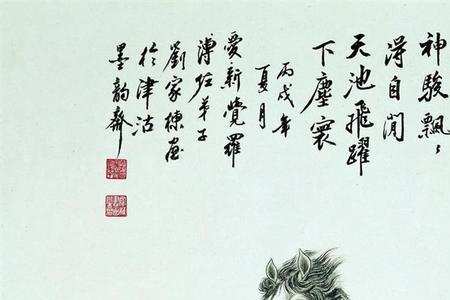 神駿飄〻
淂自閒
天池飛躍
下塵寰
丙戌年
夏月
愛新覺羅
溥佐弟子
劉家棟画
於津沽
墨韵齋